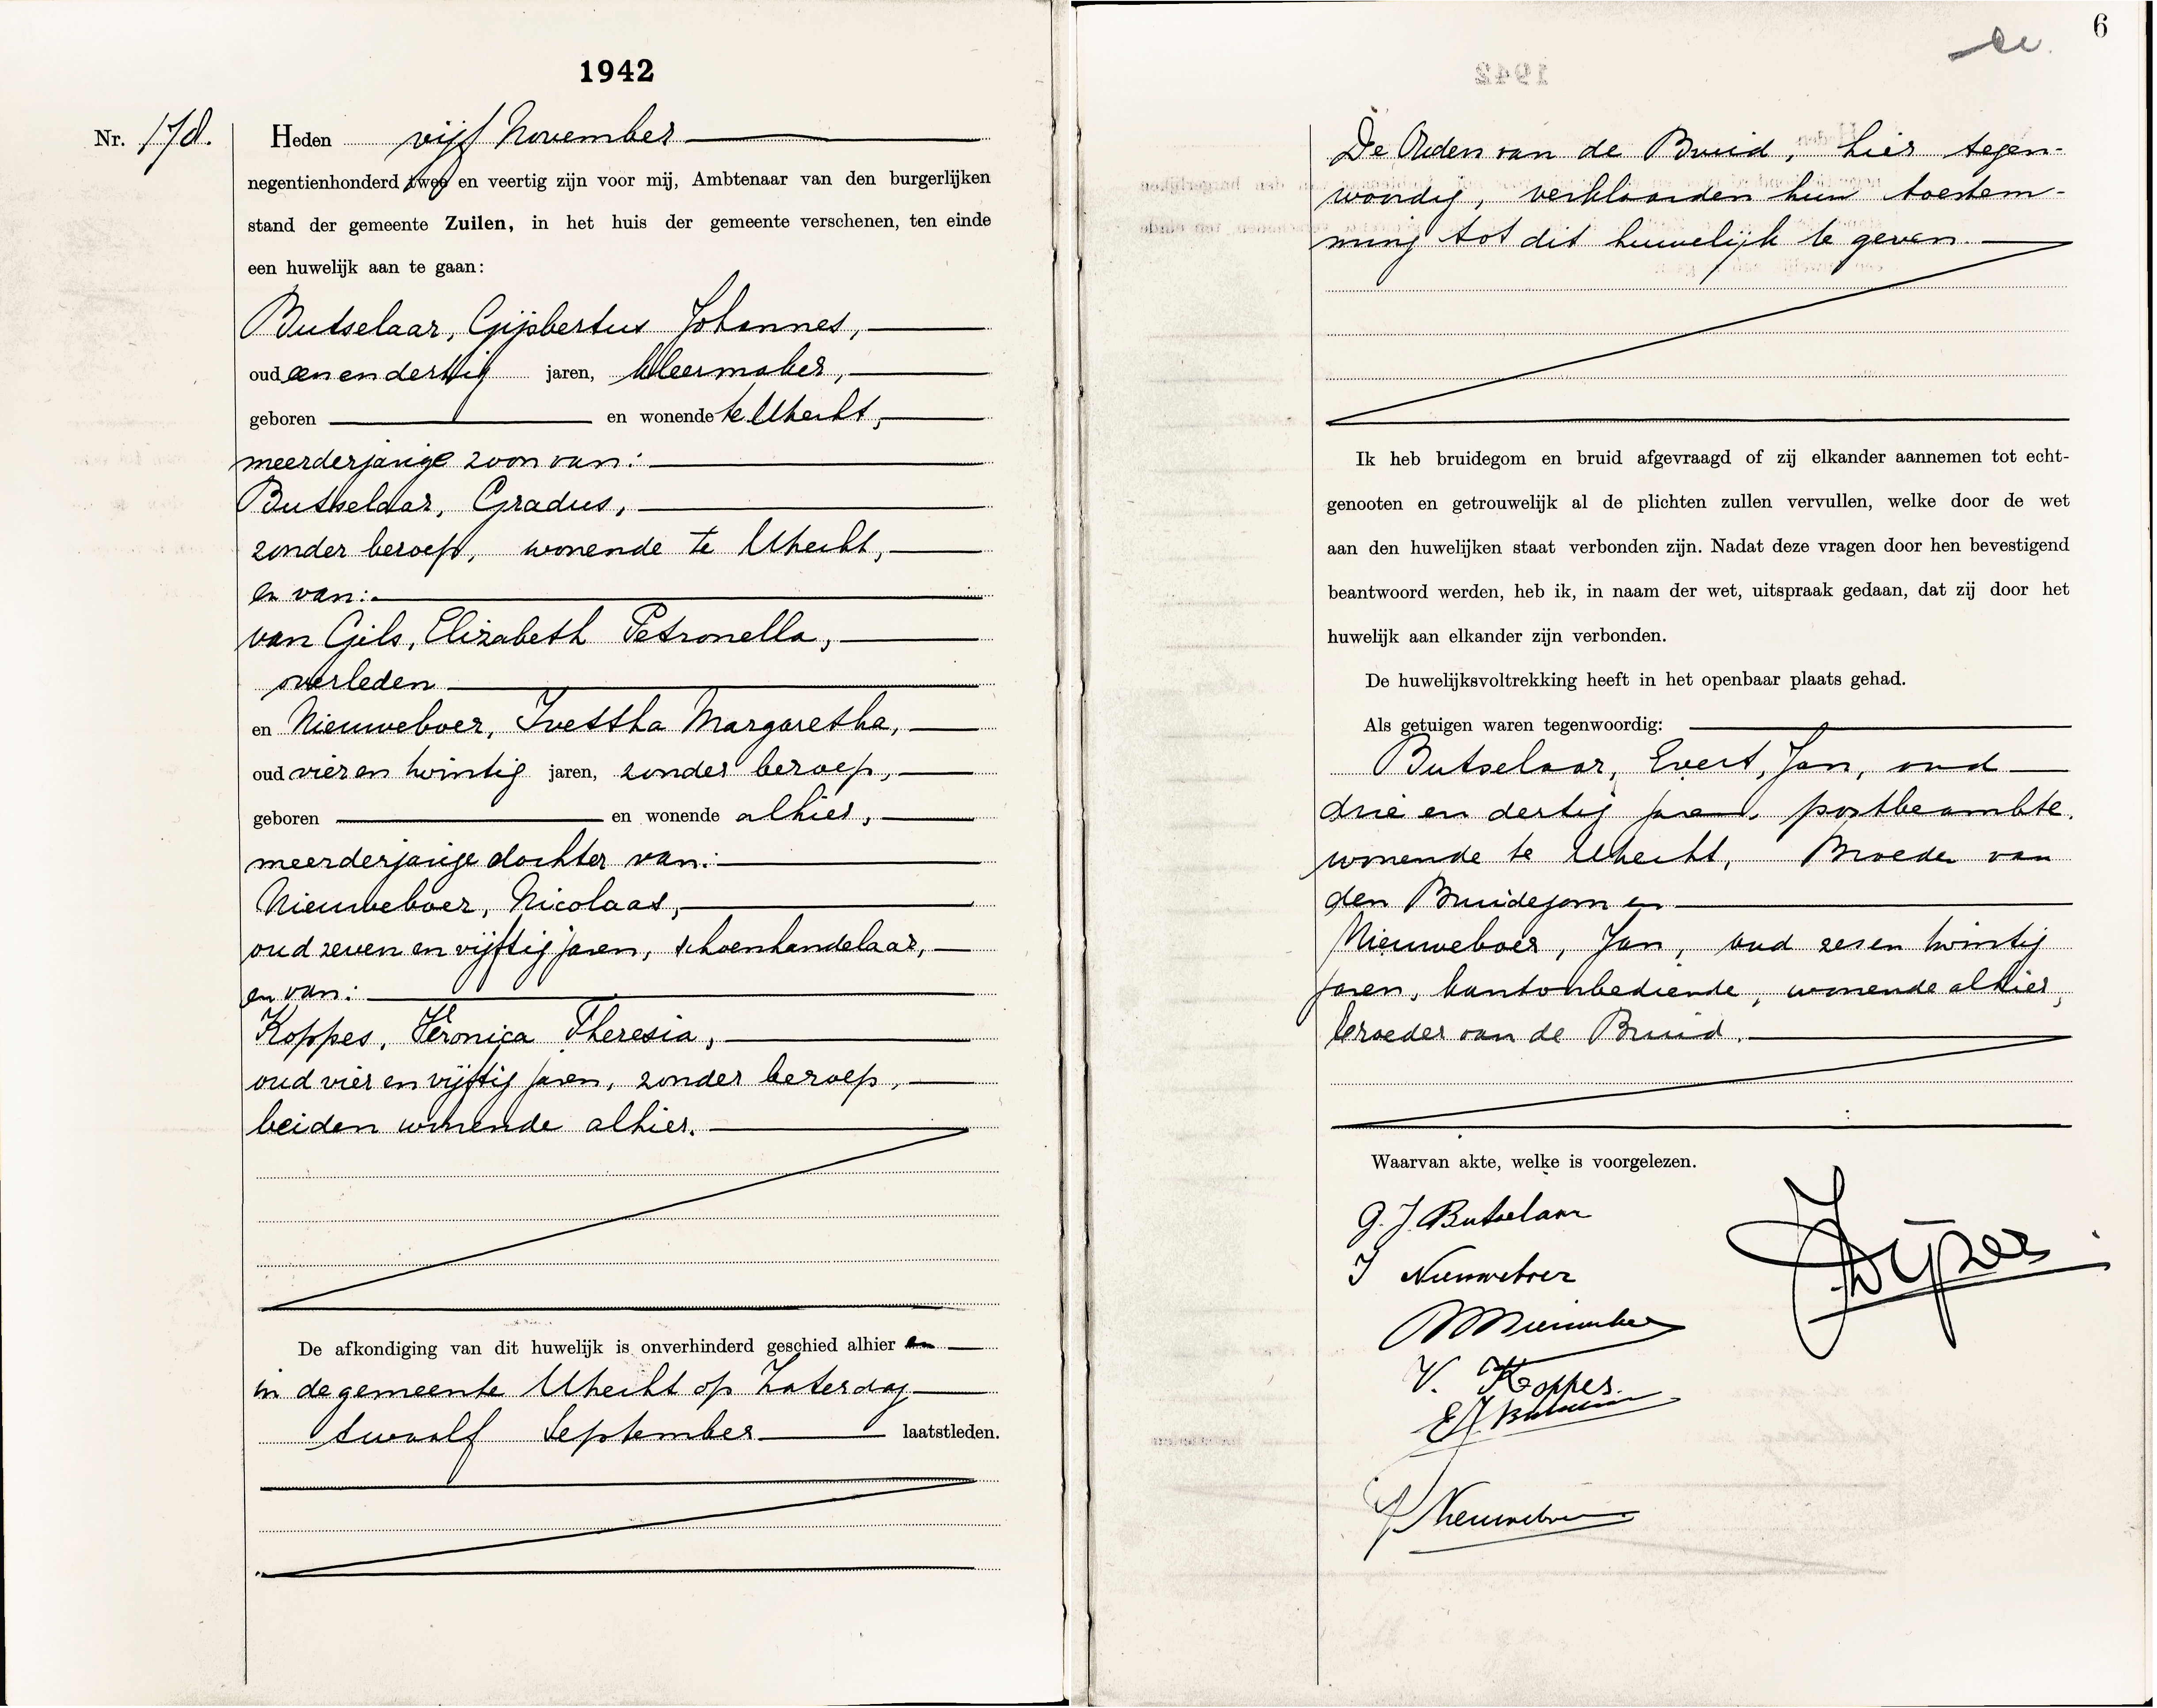 1942
Nr. 178.
Heden vijf November
negentienhonderd twee en veertig zijn voor mij, Ambtenaar van den burgerlijken
stand der gemeente Zuilen, in het huis der gemeente verschenen, ten einde
een huwelijk aan te gaan:
Butselaar, Gijsbertus Johannes,
oud een en dertig jaren, kleermaker,
geboren en wonende te Utrecht,
meerderjarige zoon van:
Butselaar, Gradus,
zonder beroep, wonende te Utrecht,
en van:
van Gils, Elizabeth Petronella,
overleden
en Nieuweboer, Ivettha Margaretha,
oud vier en twintig jaren, zonder beroep,
geboren en wonende alhier,
meerderjarige dochter van:
Nieuweboer, Nicolaas,
oud zeven en vijftig jaren, schoenhandelaar,
en van:
Koppes, Veronica Theresia,
oud vier en vijftig jaren, zonder beroep,
beiden wonende alhier.
De afkondiging van dit huwelijk is onverhinderd geschied alhier en
in de gemeente Utrecht op Zaterdag
twaalf September laatstleden.
6
De Ouders van de Bruid, hier tegen-
woordig, verklaarden hun toestem-
ming tot dit huwelijk te geven.
Ik heb bruidegom en bruid afgevraagd of zij elkander aannemen tot echt-
genooten en getrouwelijk al de plichten zullen vervullen, welke door de wet
aan den huwelijken staat verbonden zijn. Nadat deze vragen door hen bevestigend
beantwoord werden, heb ik, in naam der wet, uitspraak gedaan, dat zij door het
huwelijk aan elkander zijn verbonden.
De huwelijksvoltrekking heeft in het openbaar plaats gehad.
Als getuigen waren tegenwoordig:
Butselaar, Evert, Jan, oud
drie en dertig jaren, postbeambte,
wonende te Utrecht, Broeder van
den Bruidegom en
Nieuweboer, Jan, oud zes en twintig
jaren, kantoorbediende, wonende alhier,
broeder van de Bruid.
Waarvan akte, welke is voorgelezen.
G. J. Butselaar
I Nieuweboer
Nieuweboer
V. Koppes.
E J Butselaar
J Nieuweboer